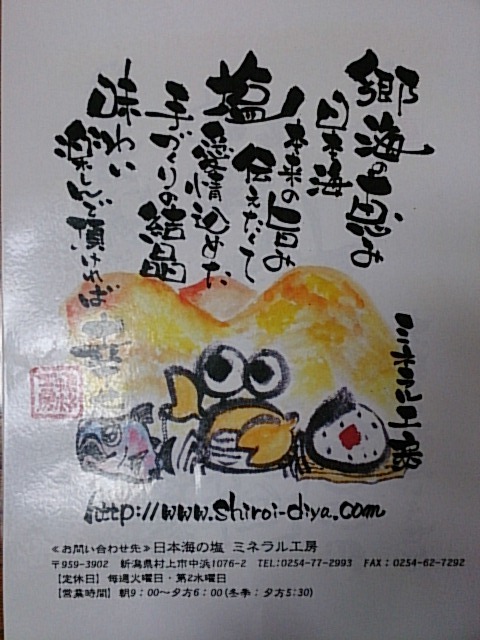 郷 海の恵み
日本海
塩
本来の旨み
伝えたくて
愛情込めた
手づくりの結晶
味わい
楽しんで頂ければ
ミネラル工房
http://www.shiroi-diya.com
≪お問い合わせ先≫日本海の塩 ミネラル工房
〒959-3902 新潟県村上市中浜1076-2 TEL:0254-77-2993 FAX:0254-62-7292
【定休日】毎週火曜日・第2水曜日
【営業時間】朝9:00～夕方6:00(冬季:夕方5:30)